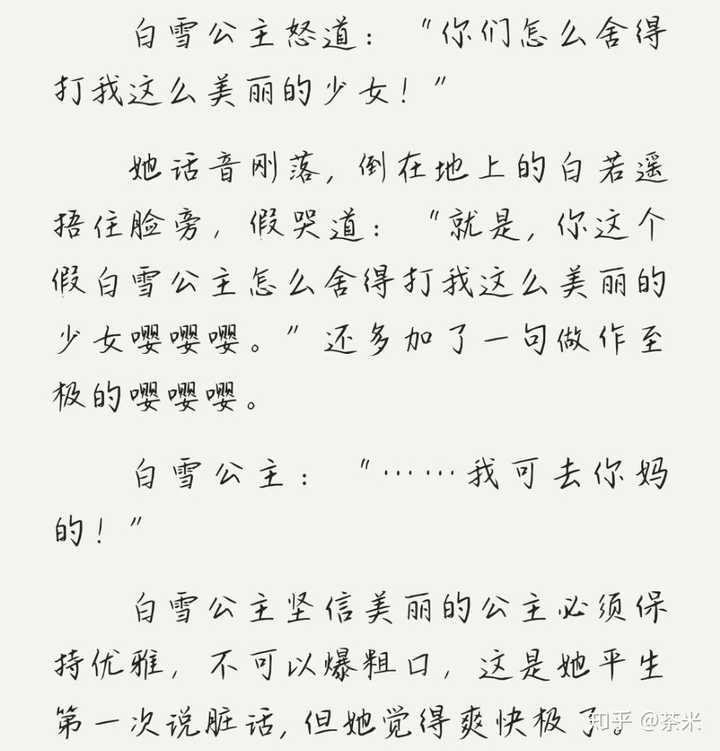 白雪公主怒道：“你们怎么舍得
打我这么美丽的少女！”
她话音刚落，倒在地上的白若遥
捂住脸旁，假哭道：“就是，你这个
假白雪公主怎么舍得打我这么美丽的
少女嘤嘤嘤。”还多加了一句做作至
极的嘤嘤嘤。
白雪公主：“……我可去你妈
的！”
白雪公主坚信美丽的公主必须保
持优雅，不可以爆粗口，这是她平生
第一次说脏话，但她觉得爽快极了。
知乎 @茶米